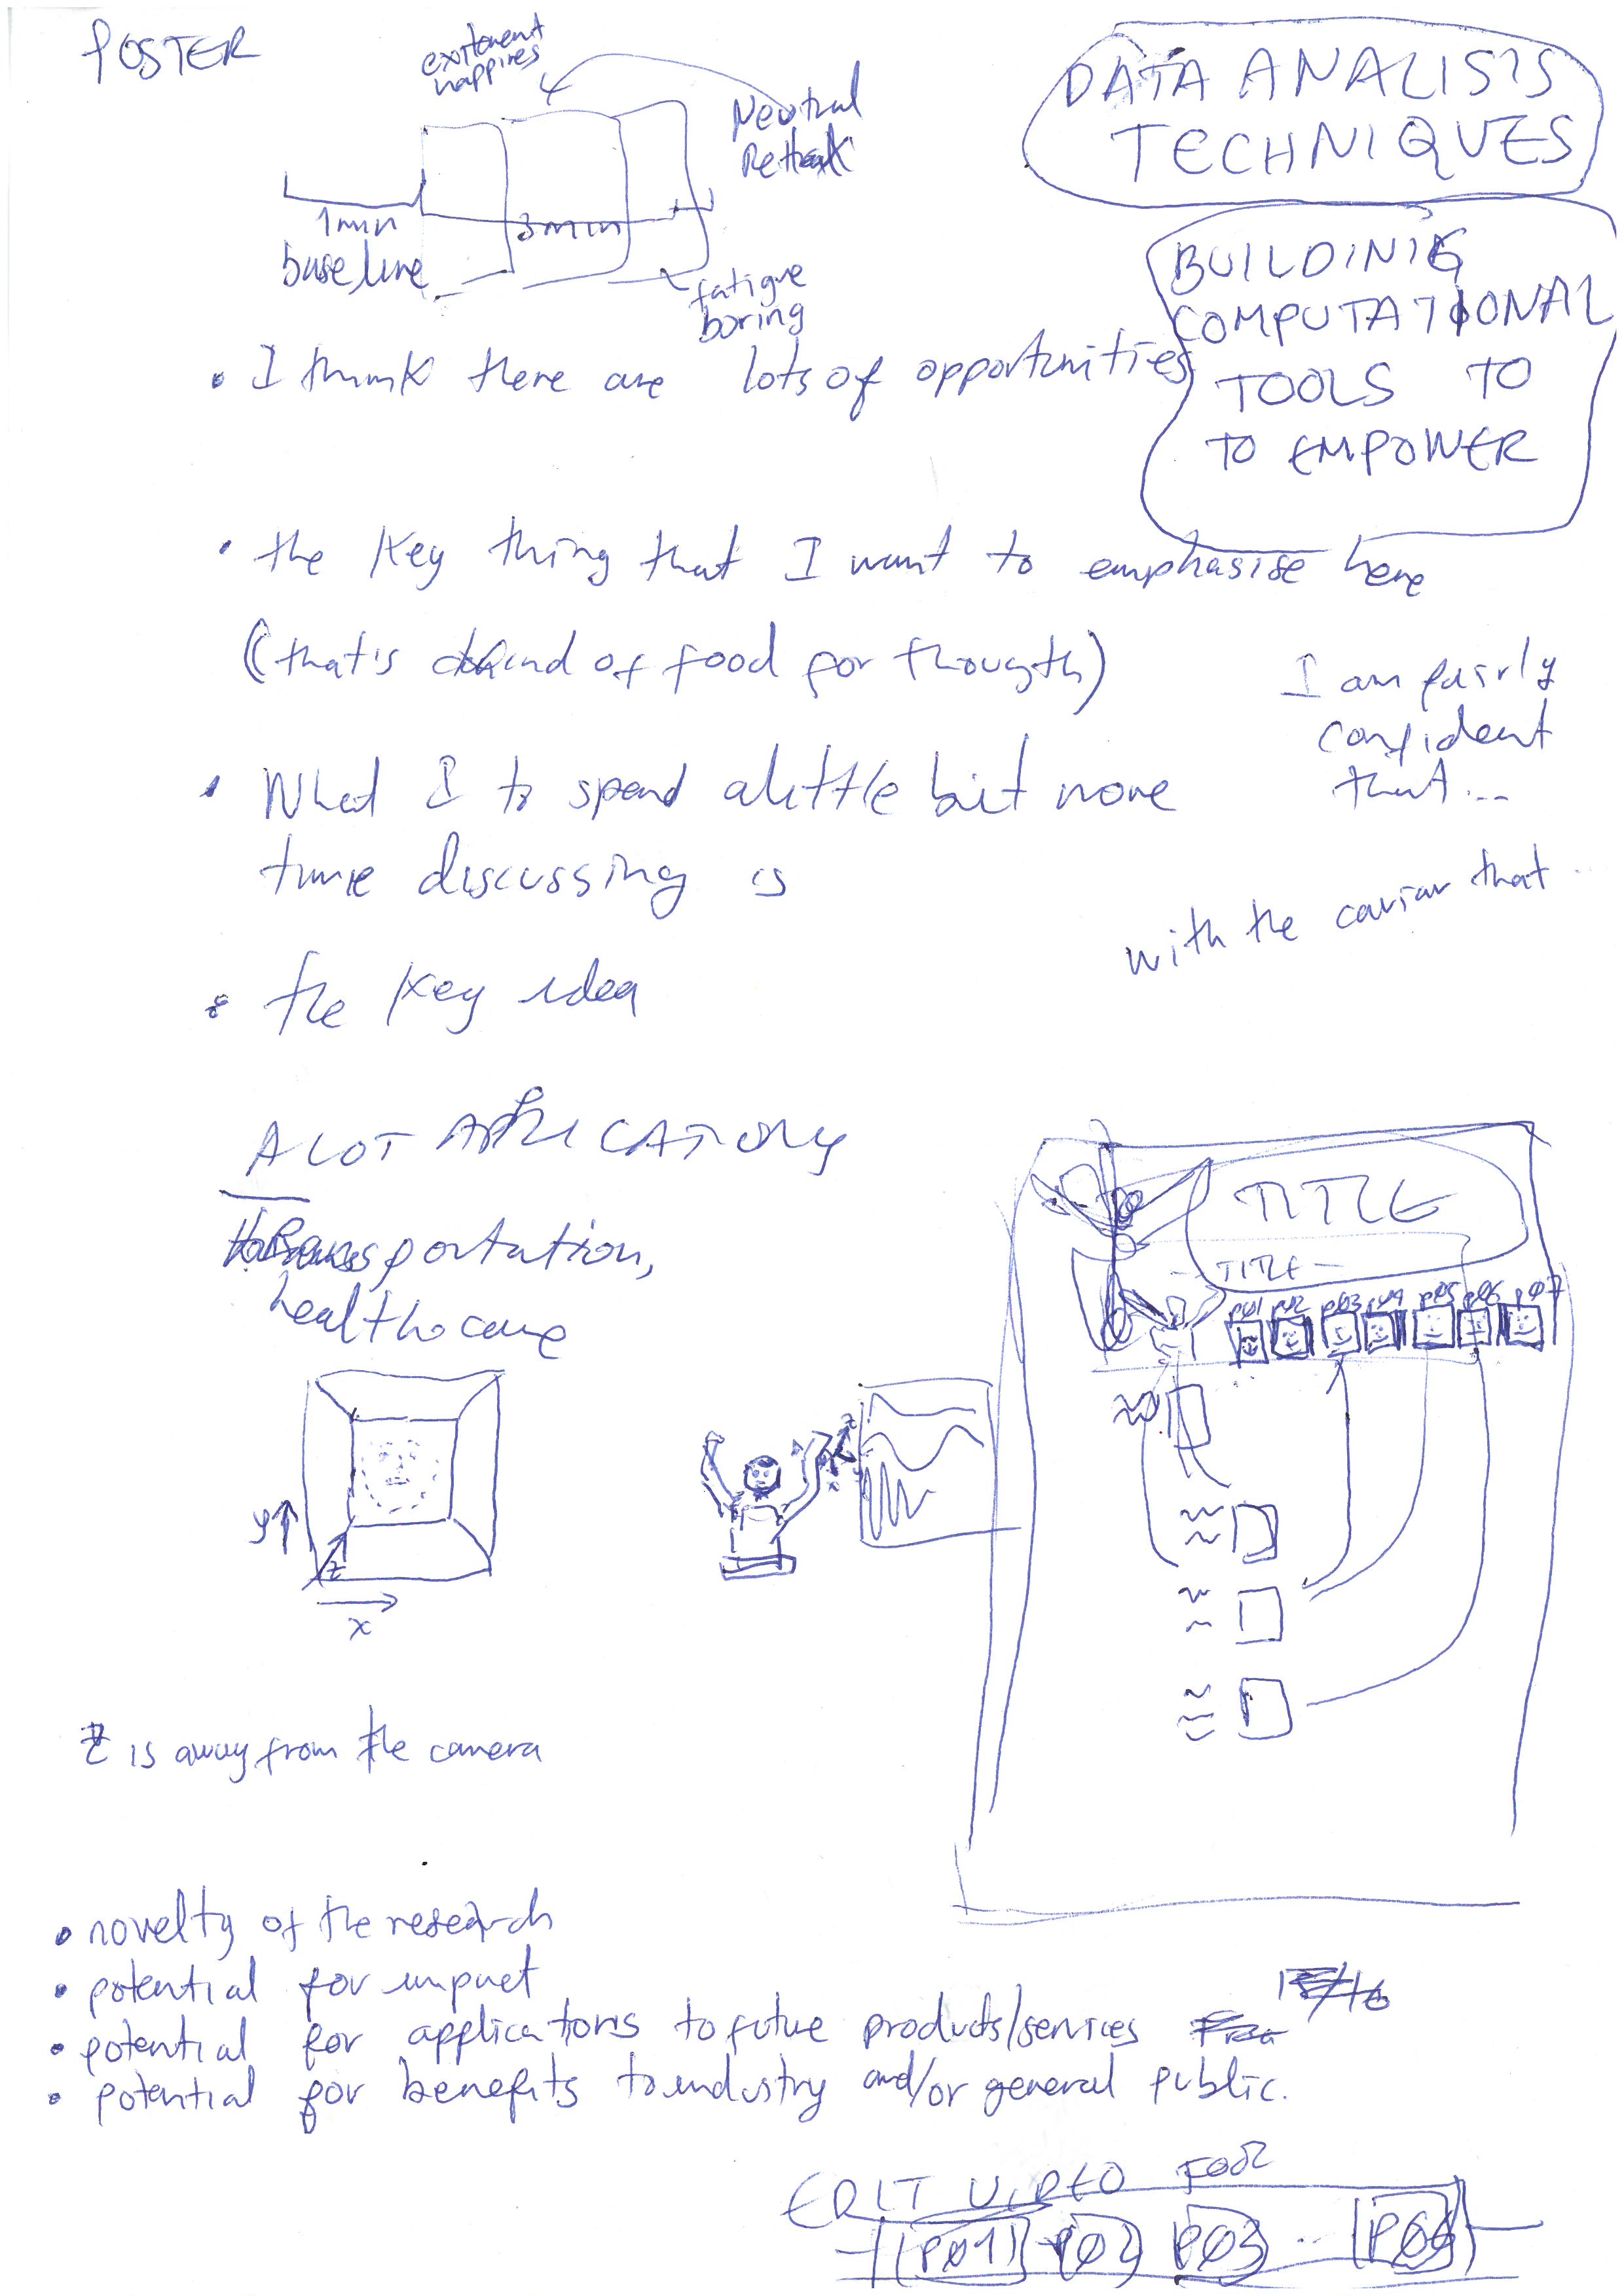 POSTER
exitement
happines
Neutral
1 min
baseline
3 min
fatigue
boring
DATA ANALISIS
TECHNIQUES
BUILDINIG
COMPUTATIONAL
TOOLS TO
TO EMPOWER
• I think there are lots of opportunities
• the key thing that I want to emphasise here
(that's kind of food for thougth)
I am fairly
confident
that...
• What I to spend a little bit more
time discussing is
with the caviar that ..
• the key idea
A LOT APPLICATIONS
transportation,
healthcare
TITLE
- TITLE -
P01 P02 P03 P04 P05 P06 P07
y
z
x
z
x
z is away from the camera
• novelty of the research
• potential for impact
• potential for applications to future products/services
15/16
• potential for benefits to industry and/or general public.
EDIT VIDEO FOOR
P01 P02 P03 .. P06